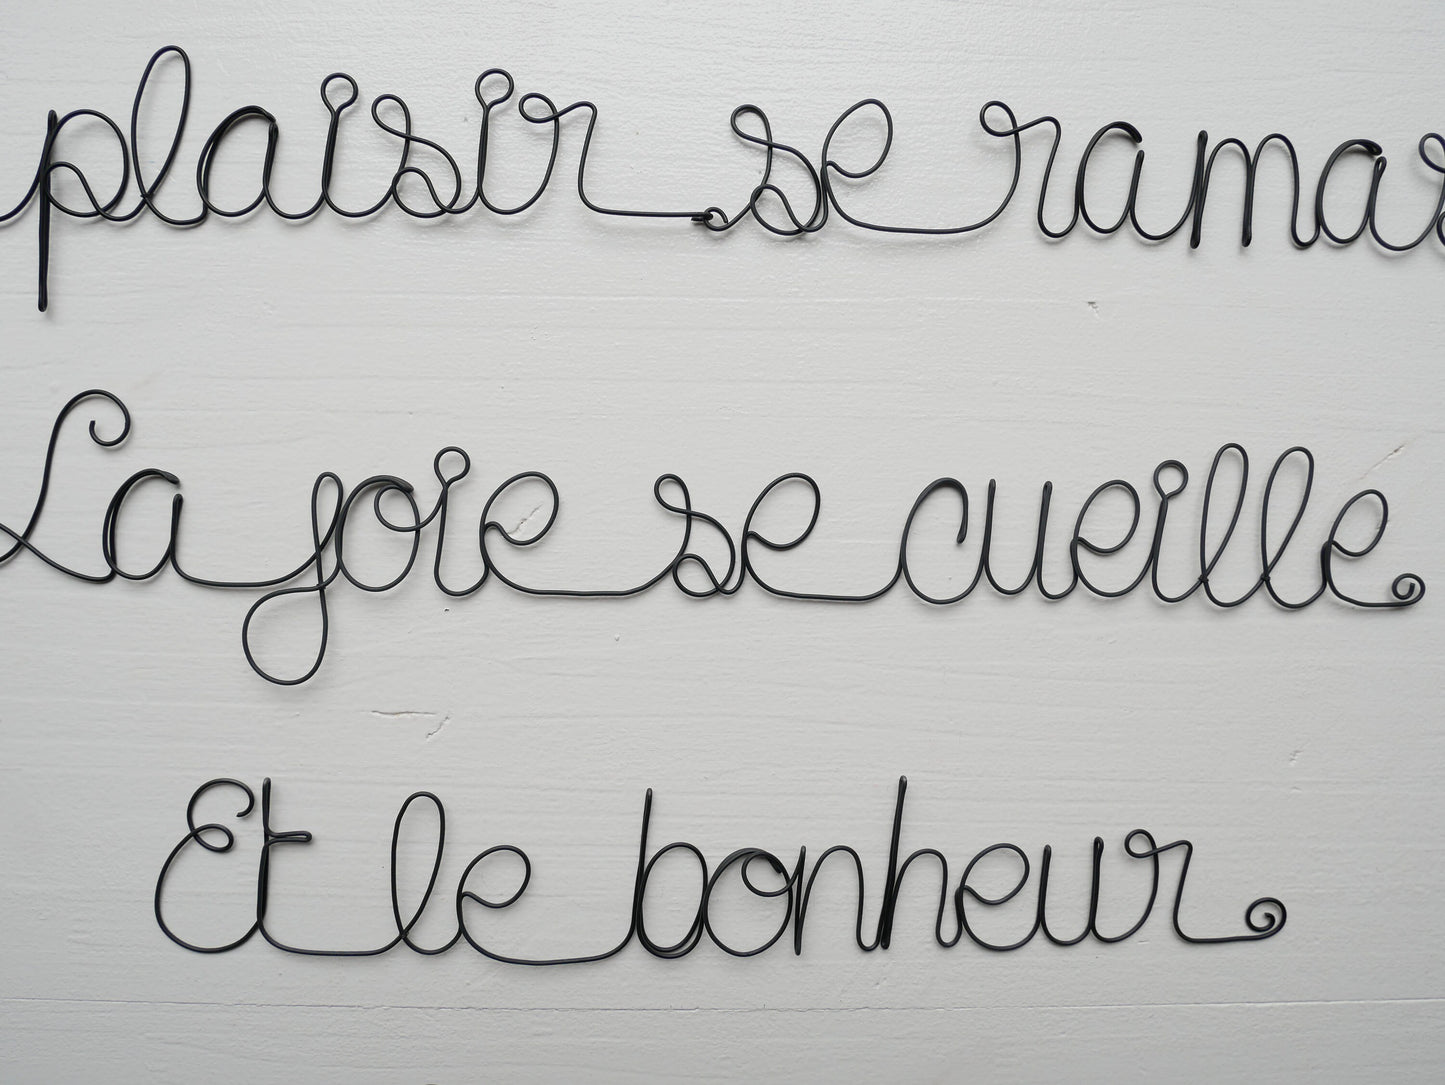 plaisir se ramas
La joie se cueille
Et le bonheur